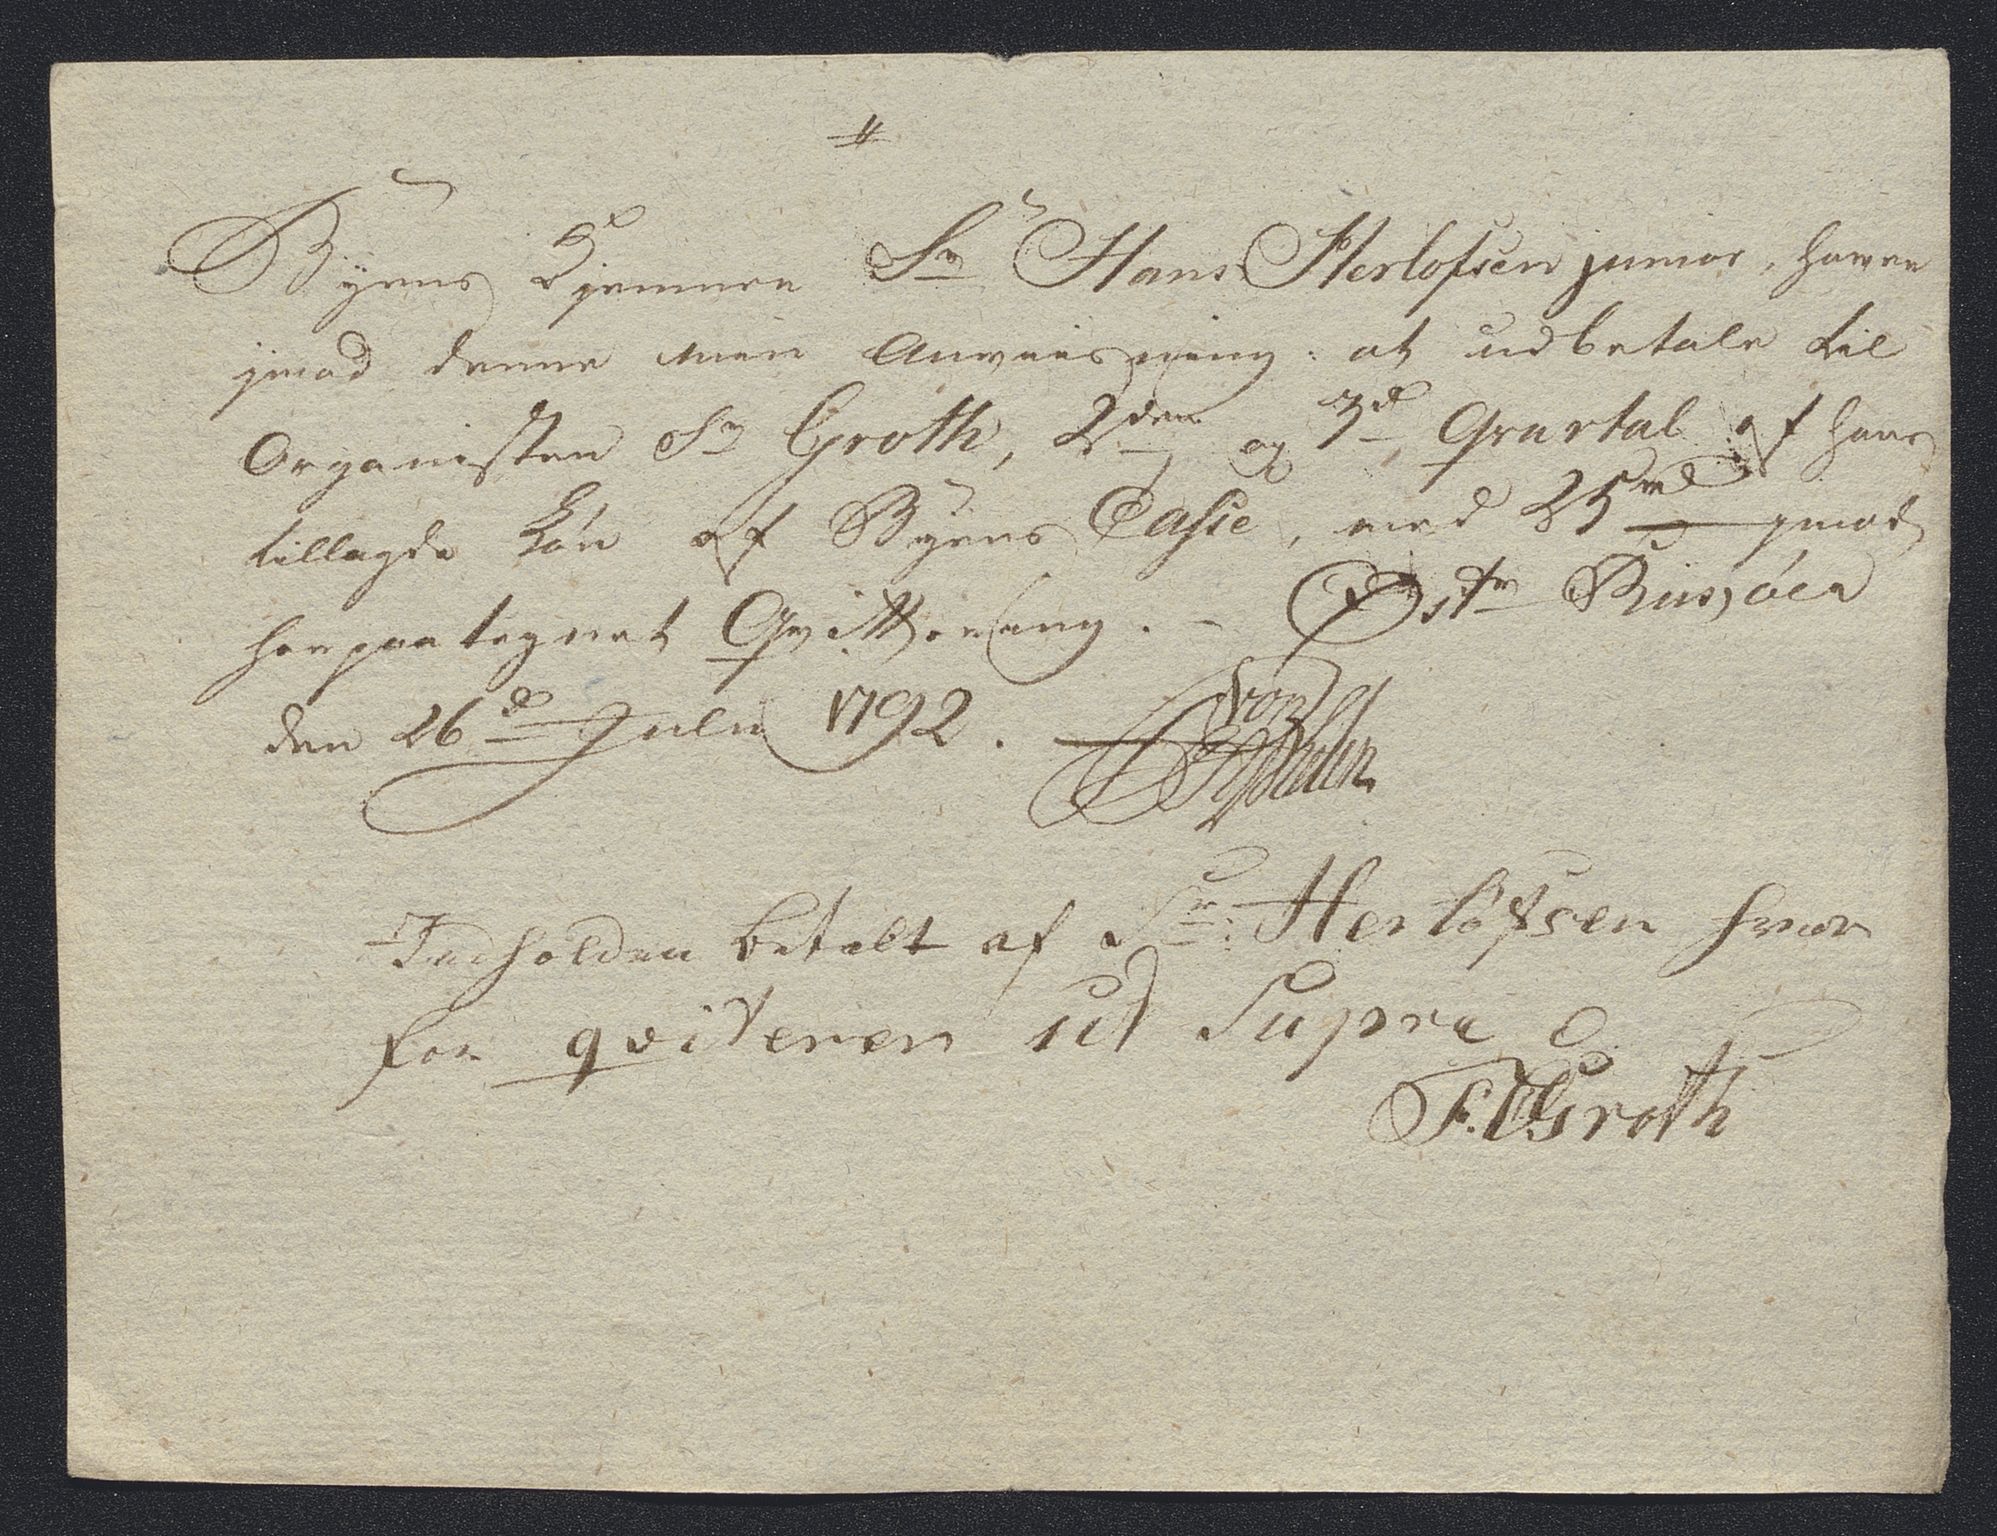 Byens Kjemnere Sr Hans Herlofsen junior, haver
imod denne min Anviisning: at udbetale til
Organisten Sr Groth, 2den og 3d Qvartal af hans
tillagde Løn af Byens Casse, med 25 rd imod
herpaategnet Qvittering. - Østr Riisøer
den 26d Julii 1792.
Indholden betalt af Sr: Herlofsen hvor
for qviterer ut Supra
F. C. Groth